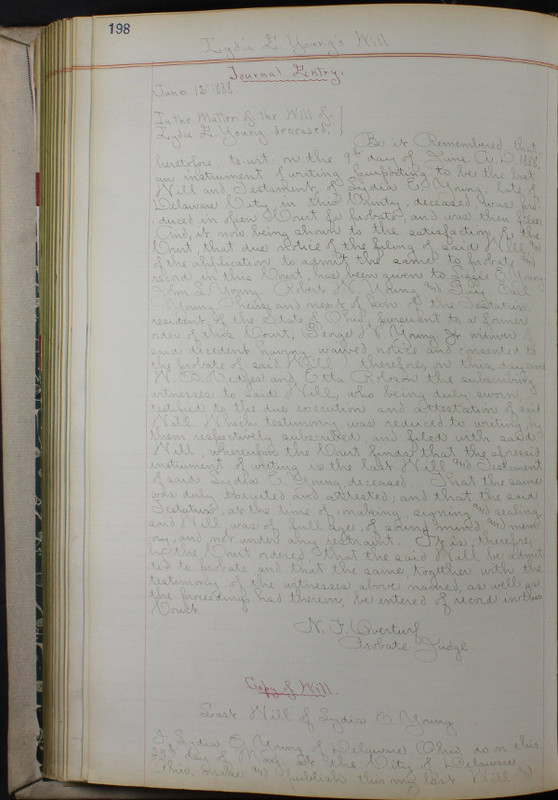 198
Lydia E. Young's Will
Journal Entry.
June 12 1888.
In the Matter of the Will of
Lydia E. Young deceased.
Be it Remembered, that
heretofore, to wit: on the 9th day of June A.D. 1888
an instrument of writing purporting to be the last
Will and Testament of Lydia E. Young late of
Delaware City in this County, deceased was pro
duced in open Court for probate, and was then filed
And, it now being shown to the satisfaction of the
Court, that due notice of the filing of said Will, and
of the application to admit the same to probate and
record in this Court, has been given to E. Young
John L. Young Robert N. Young and Guy Earl
Young heirs and next of kin of the Testatrix
resident of the State of Ohio, pursuant to a former
order of this Court, George W. Young Jr widower of
said decedent having waived notice and consented to
the probate of said Will; therefore, on this day came
W. B. Hedges and Etta Robson the subscribing
witnesses to said Will, who being duly sworn,
testified to the due execution and attestation of said
Will. Which testimony was reduced to writing, by
them respectively subscribed, and filed with said
Will, whereupon the Court finds that the aforesaid
instrument of writing is the last Will and Testament
of said Lydia E. Young, deceased. That the same
was duly executed and attested, and that the said
Testatrix, at the time of making, signing and sealing
said Will, was of full age, of sound mind and mem
ory, and not under any restraint. It is, therefore,
by the Court ordered that the said Will be admit
ted to probate and that the same, together with the
testimony of the witnesses above named, as well as
the proceedings had thereon, be entered of record in this
Court.
N. F. Overturf
Probate Judge
Copy of Will.
Last Will of Lydia E. Young
I Lydia E. Young of Delaware Ohio, do on this
29th day of May At the City of Delaware
Ohio, make and publish this my last Will and